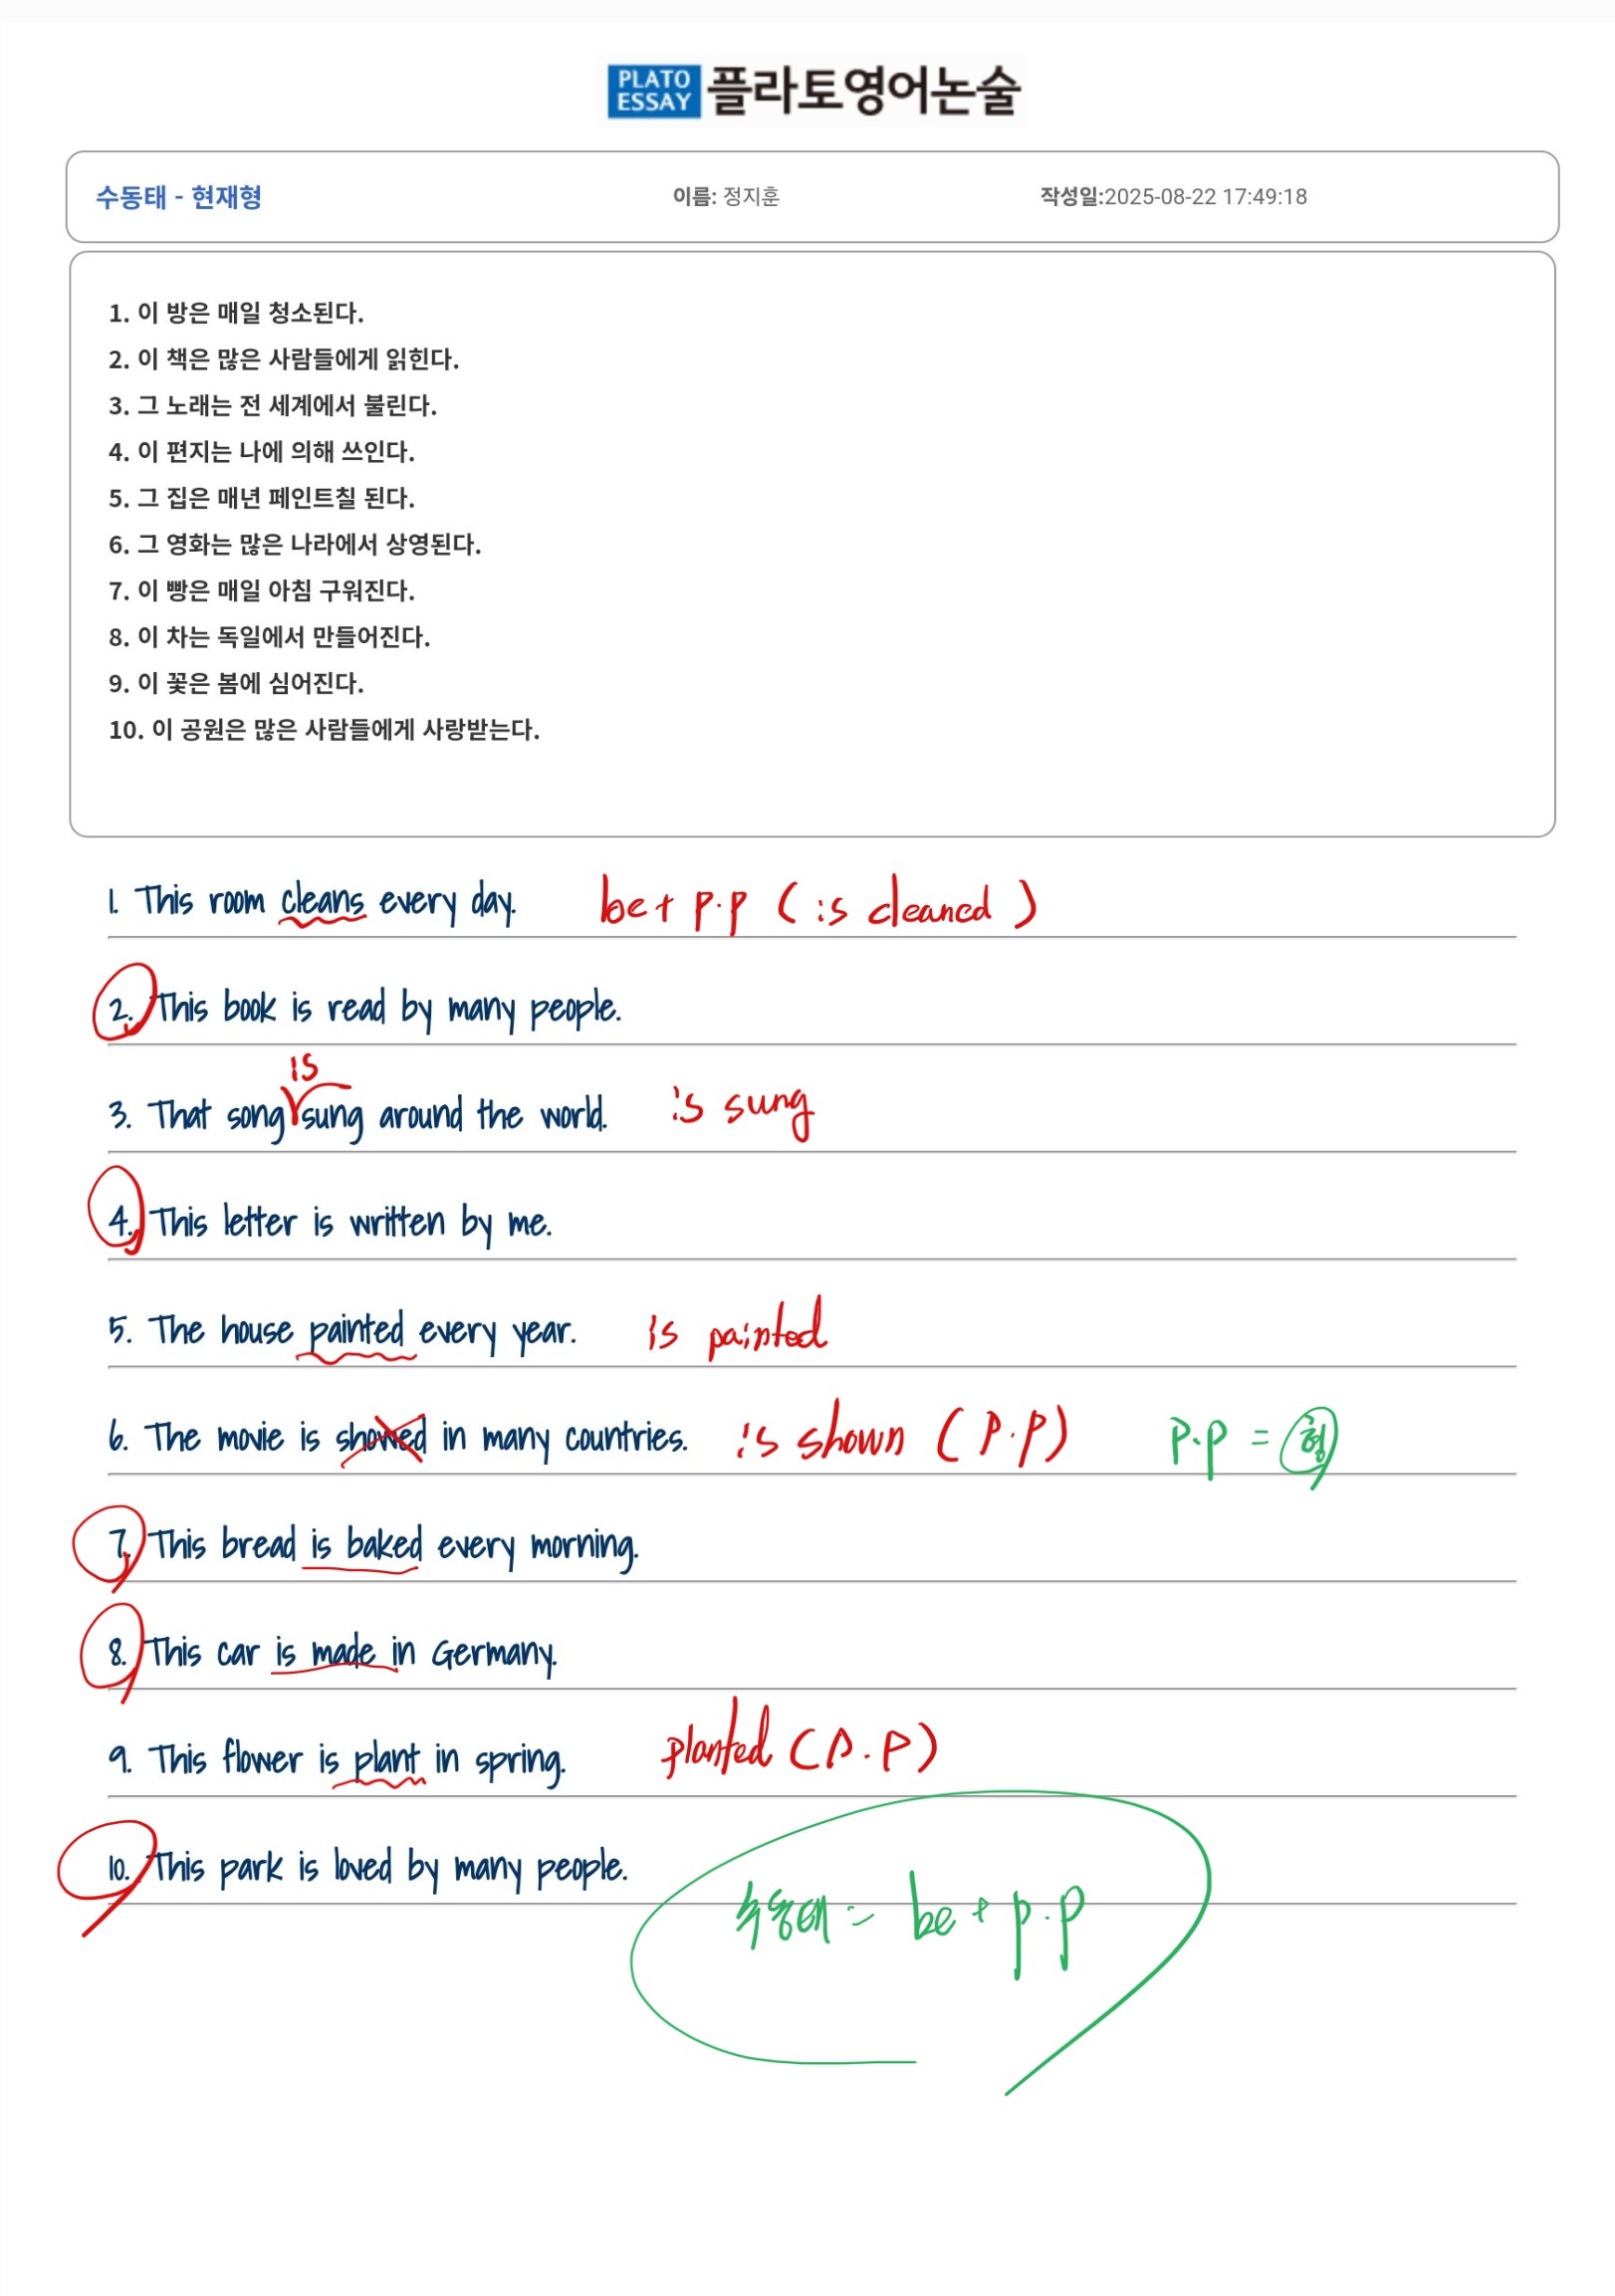 PLATO ESSAY 플라토영어논술
수동태 - 현재형 이름: 정지훈 작성일:2025-08-22 17:49:18
1. 이 방은 매일 청소된다.
2. 이 책은 많은 사람들에게 읽힌다.
3. 그 노래는 전 세계에서 불린다.
4. 이 편지는 나에 의해 쓰인다.
5. 그 집은 매년 페인트칠 된다.
6. 그 영화는 많은 나라에서 상영된다.
7. 이 빵은 매일 아침 구워진다.
8. 이 차는 독일에서 만들어진다.
9. 이 꽃은 봄에 심어진다.
10. 이 공원은 많은 사람들에게 사랑받는다.
1. This room cleans every day. be + p.p ( is cleaned )
2. This book is read by many people.
is
3. That song sung around the world. is sung
4. This letter is written by me.
5. The house painted every year. is painted
6. The movie is showed in many countries. is shown ( P.P ) P.P = 형
7. This bread is baked every morning.
8. This car is made in Germany.
9. This flower is plant in spring. planted ( P.P )
10. This park is loved by many people.
수동태 = be + p.p